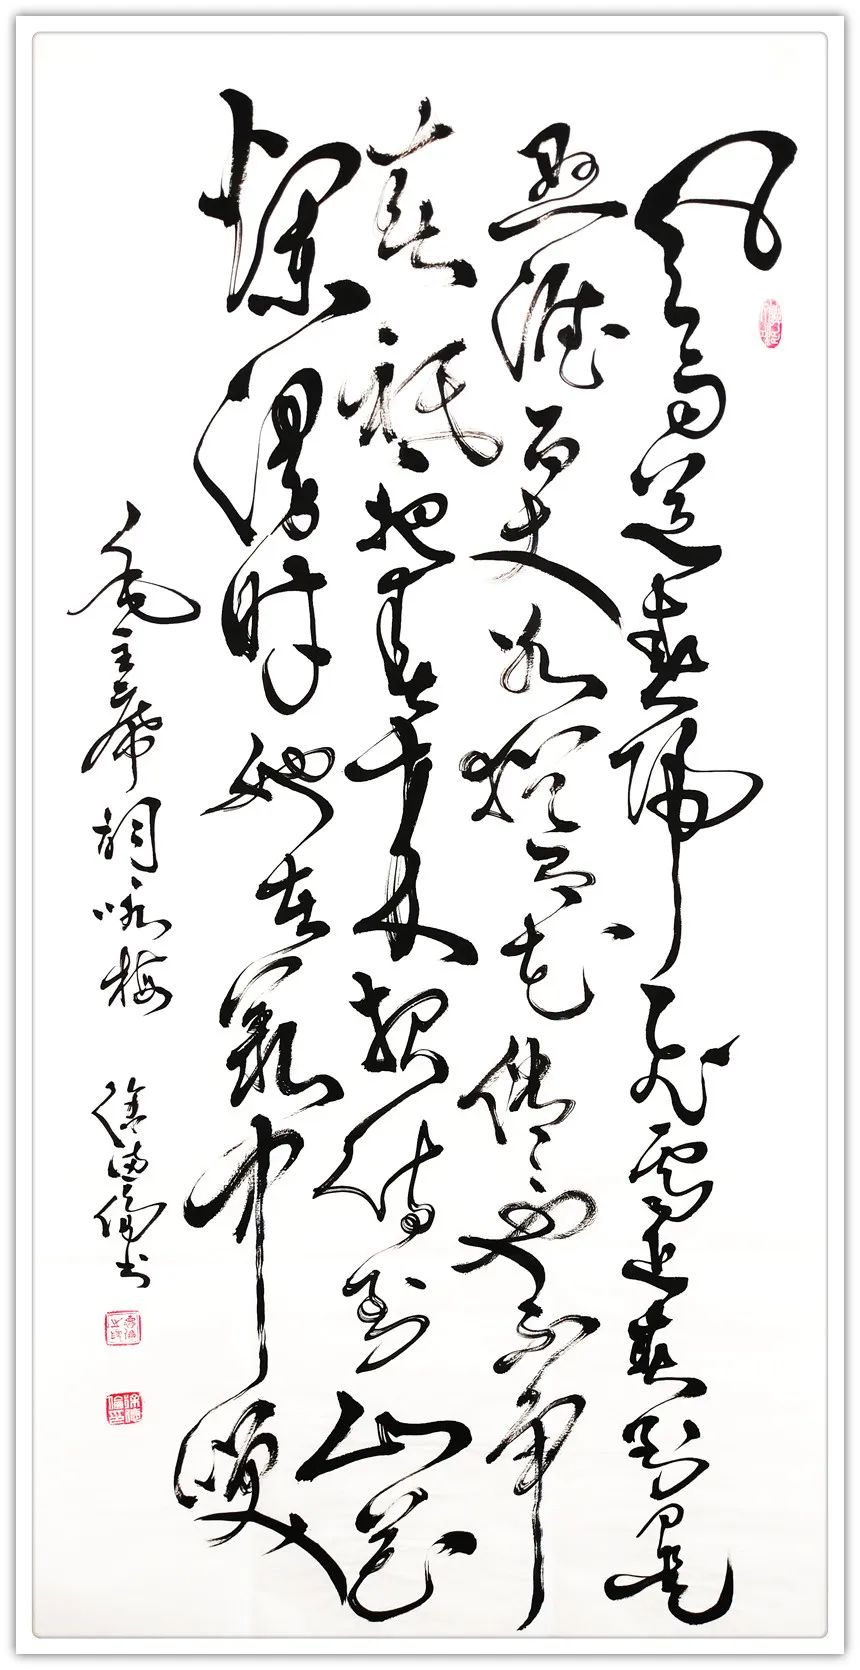 风雨送春归飞雪迎春到是
悬涯百丈冰犹有花俏〻也不争
春祇把春来报待到山花
烂漫时她在丛中笑
毛主席词咏梅 徐德伦书